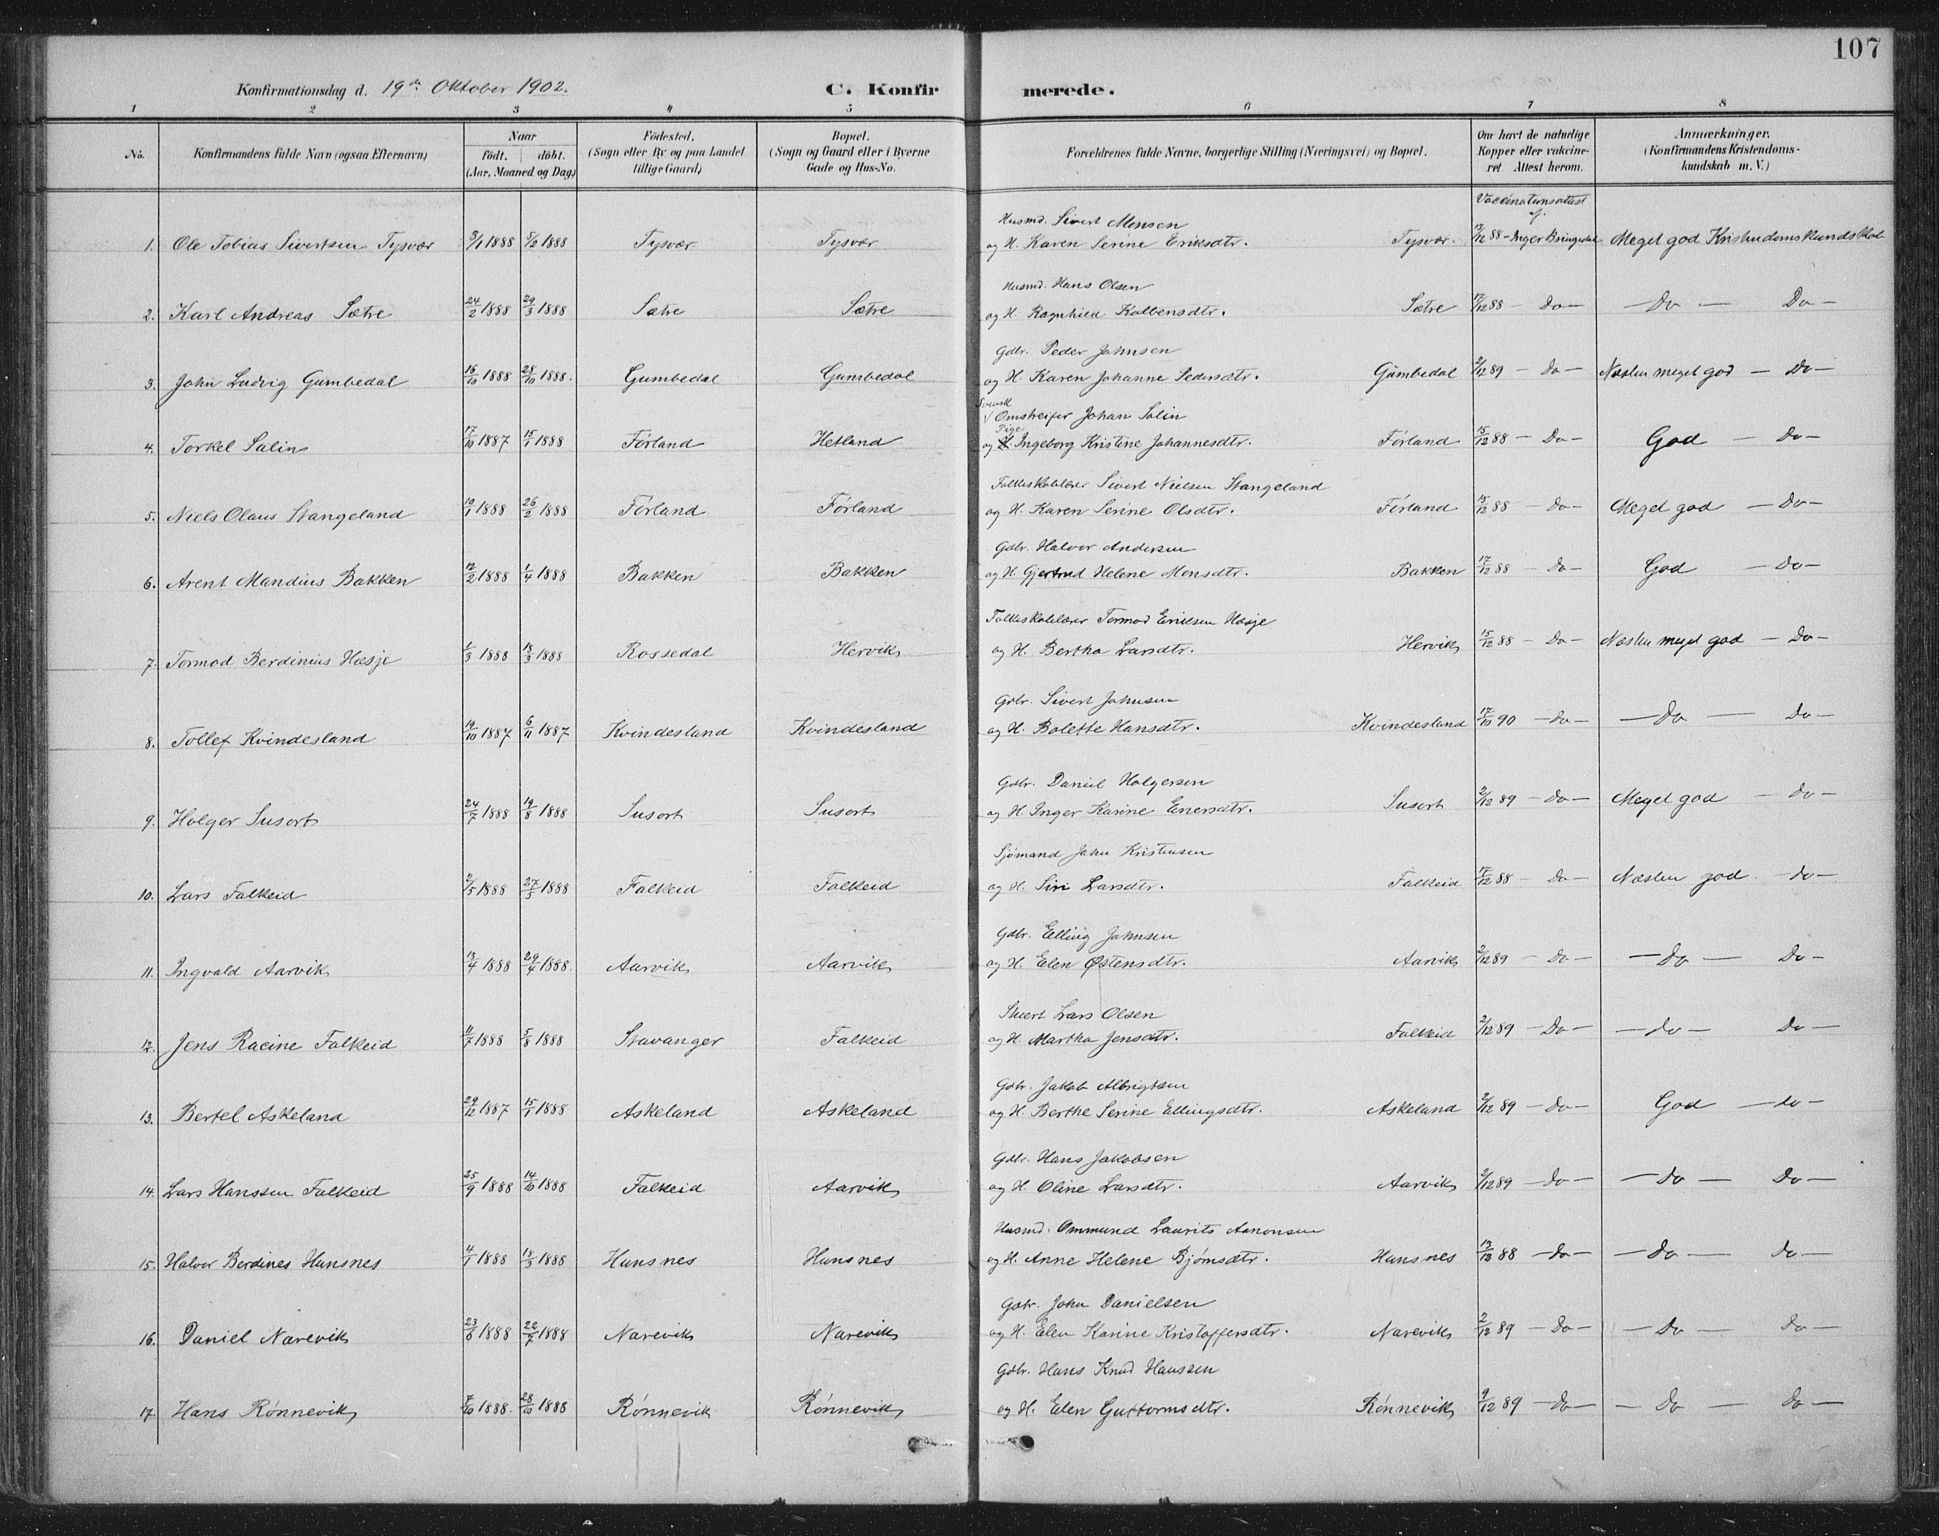 107
Konfirmationsdag d. 19de Oktober 1902. C. Konfirmerede.
1 2 3 4 5 6 7 8
No. Konfirmandens fulde Navn (ogsaa Efternavn) Naar født, døbt, (Aar, Maaned og Dag) Fødested, (Sogn eller By og paa Landet tillige Gaard) Bopæl. (Sogn og Gaard eller i Byerne Gade og Hus-No. Forældrenes fulde Navne, borgerlige Stilling (Næringsvei) og Bopæl. Om havt de naturlige Kopper eller vaccineret Attest herom. Anmærkninger. (Konfirmandens Kristendomskundskab m. V.)
Vaccinationsattest af
Husmd. Sivert Monsen
1. Ole Tobias Sivertsen Tysvær 3/1 1888 5/2 1888 Tysvær Tysvær og H. Karen Serine Eriksdtr. Tysvær. 13/12 88 - Inger Bringedal Meget god Kristendomskundskab
Husmd. Hans Olsen
2. Karl Andreas Sætre 24/2 1888 29/3 1888 Sætre Sætre og H. Ragnhild Kolbensdtr. Sætre 17/12 88 - Do - - Do - Do -
Gdbr. Peder Johnsen
3. John Ludvig Gumbedal 16/10 1888 28/10 1888. Gumbedal Gumbedal og H. Karen Johanne Pedersdtr. Gumbedal 2/12 89 - Do - Næsten meget god - Do -
Svensk Omstreifer Johan Salin
4. Torkel Salin 17/10 1887 15/1 1888 Førland Hetland og Pige Ingeborg Kristine Johannesdtr. Førland 15/12 88 - Do - God - Do -
Folkeskolelærer Sivert Nielsen Stangeland
5. Niels Olaus Stangeland 10/1 1888 26/2 1888 Førland Førland og H. Karen Serine Olsdtr. Førland 15/12 88 - Do - Meget god - Do -
Gdbr. Halvor Andersen
6. Arent Mandius Bakken 12/2 1888 1/4 1888 Bakken Bakken og H. Gjertrud Helene Monsdtr. Bakken 17/12 88 - Do - God - Do -
Folkeskolelærer Tormod Eriksen Hæsje
7. Tormod Berdinius Hæsje 1/3 1888 18/3 1888 Rossedal Hervik og H. Bertha Larsdtr. Hervik 15/12 88 - Do - Næsten meget god - Do -
Gdbr. Sivert Johnsen
8. Tollef Kvindesland 19/10 1887 6/11 1887 Kvindesland Kvindesland og H. Bolette Hansdtr. Kvindesland 17/10 90 - Do - - Do - Do -
Gdbr. Daniel Holgersen
9. Holger Susort 24/7 1888 19/8 1888 Susort Susort og H. Inger Karine Enersdtr. Susort 2/12 89 - Do - Meget god - Do -
Sjømand John Kristensen
10. Lars Falkeid 2/5 1888 27/5 1888 Falkeid Falkeid og H. Siri Larsdtr. Falkeid 17/12 88 - Do - Næsten god - do -
Gdbr. Elling Johnsen
11. Ingvald Aarvik 13/4 1888 29/4 1888. Aarvik Aarvik og H. Elen Østensdtr. Aarvik 2/12 89 - Do - - Do - Do -
Lars Olsen
12. Jens Racine Falkeid 11/7 1888 5/8 1888 Stavanger Falkeid og H. Martha Jensdtr. Falkeid 2/12 89 - Do - - do - Do -
Gdbr. Jakob Albrigtsen
13. Bertel Askeland 29/12 1887 15/1 1888 Askeland Askeland og H. Berthe Serine Ellingsdtr. Askeland 2/12 89 - Do - God - do -
Gdbr. Hans Jakobsen
14. Lars Hanssen Falkeid 25/9 1888 14/10 1888 Falkeid Aarvik og H. Oline Larsdtr. Aarvik 2/12 89 - Do - - Do - Do -
Husmd. Ommund Laurits Aanonsen
15. Halvor Berdines Hansnes 4/1 1888 18/3 1888 Hansnes Hansnes og H. Anne Helene Bjørnsdtr. Hansnes 13/12 88 - Do - - Do - Do -
Gdbr. John Danielsen
16. Daniel Narevik 23/6 1888 22/7 1888 Narevik Narevik og H. Elen Karine Kristoffersdtr. Narevik 2/12 89 - Do - - Do - Do -
Gdbr. Hans Knud Hanssen
17. Hans Rønnevik 7/10 1888. 28/10 1888 Rønnevik Rønnevik og H. Elen Guttormsdtr. Rønnevik 9/12 89 - Do - - Do - Do -